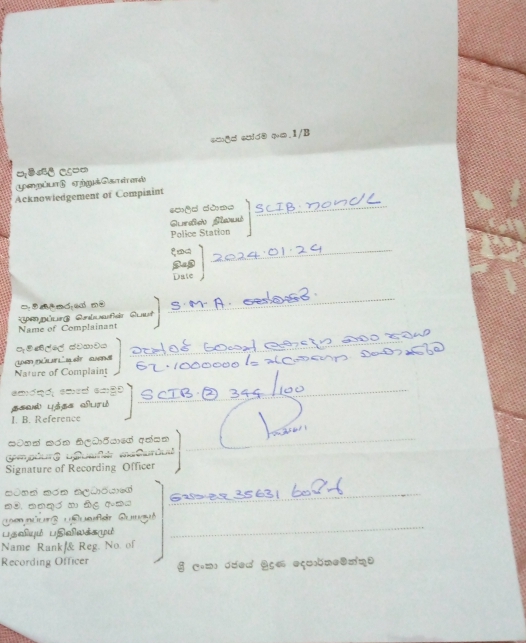 පොලිස් පෝරම අංක.1/B
පැමිණිලි ලදුපත
முறைப்பாடு ஏற்றுக்கொள்ளல்
Acknowledgement of Complaint
පොලිස් ස්ථානය
பொலிஸ் நிலையம்
Police Station
SCIB.
දිනය
திகதி
Date
2024.01.24
පැමිණිකරුගේ නම
முறைப்பாடு செய்பவரின் பெயர்
Name of Complainant
S.M.A.
පැමිණිල්ලේ ස්වභාවය
முறைப்பாட்டின் வகை
Nature of Complaint
රු.1000000/=
තොරතුරු පොතේ යොමුව
தகவல் புத்தக விபரம்
I. B. Reference
SCIB (2) 344/100
සටහන් කරන නිලධාරියාගේ අත්සන
முறைப்பாடு பதிபவரின் கையொப்பம்
Signature of Recording Officer
සටහන් කරන නිලධාරියාගේ
නම, තනතුර හා නිළ අංකය
முறைப்பாடு பதிபவரின் பெயரும்
பதவியும் பதிவிலக்கமும்
Name Rank & Reg. No. of
Recording Officer
35631
ශ්‍රී ලංකා රජයේ මුද්‍රණ දෙපාර්තමේන්තුව